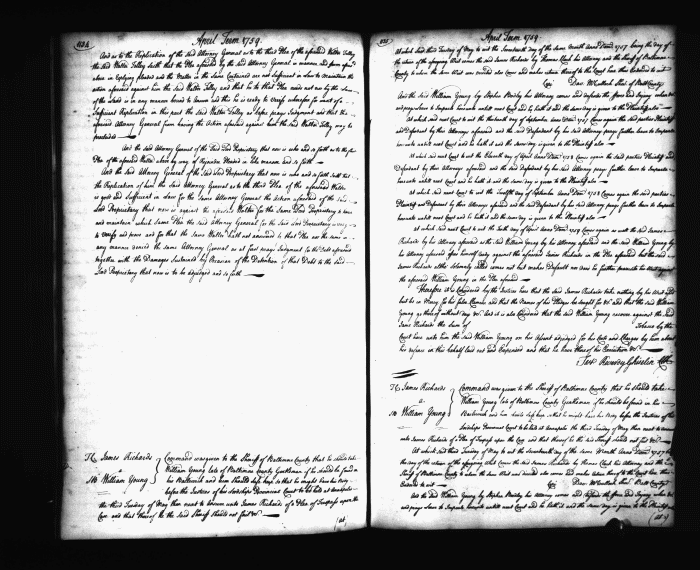 April Term 1759
And as to the Replication of the said Attorney General as to the third Plea of the aforesaid Walter Tolley
the said Walter Tolley saith that the Plea aforesaid by the said Attorney General in manner and form afores.
above in replying pleaded and the Matter in the same Contained are not sufficient in Law to maintain the
action aforesaid against him the said Walter Tolley and that he to that Plea
of the is in any manner bound to answer and this he is ready to verify wherefore for want of a
Sufficient Replication in this part the said Walter Tolley as before prays Judgment and that the
aforesaid Attorney General from having the Action aforesaid against him the said Walter Tolley may be
precluded
And the said Attorney General of the Lord Proprietary that now is who and so forth as to the
Plea of the aforesaid Walter above by way of Rejoinder Pleaded in like manner and so forth
And the said Attorney General of the said Lord Proprietary that now is who and so forth saith that
the Replication of him the said Attorney General as to the third Plea of the aforesaid Walter
is good and Sufficient in Law for the same Attorney General the Action aforesaid of the said
Lord Proprietary that now is against the aforesaid Walter for the same Lord Proprietary to have
and maintain which same Plea the said Attorney General for the said Lord Proprietary
to verify and prove and for that the same Walter hath not answered to that Plea nor the same
any manner denied the same Attorney General as at first prays Judgment for the Debt aforesaid
together with the Damages Sustained by Reason of the Detention of that Debt to the said
Lord Proprietary that now is to be adjudged and so forth
James Richards
a
William Young
Command was given to the Sheriff of Baltimore County that he should take
William Young late of Baltimore County Gentleman if he should be found in
his Bailiwick and him should safe keep so that he might have his Body
before the Justices of his Lordships Provincial Court to be held at Annapolis
the third Tuesday of May then next to answer unto James Richards of a Plea of Trespass upon the
Case and that thereof he the said Sheriff should not fail &c
(at
April Term 1759
At which said third Tuesday of May to wit the Seventeenth day of the same Month Anno Domini 1757 being the day of
the return of the aforegoing Writ comes the said James Richards by Thomas Clark his Attorney and the Sheriff of Baltimore
County to whom the Writ was directed also Comes and makes return thereof to the Court here thus Endorsed to wit
Cepi Dav. McCulloch Sher. of Balt. County
And the said William Young by Stephen Bordley his Attorney comes and defends the force and Injury when &c
and prays leave to Imparle hereunto until next Court and he hath it and the same day is given to the Plaintiff also
At which said next Court to wit the thirteenth day of September Anno Domini 1757 Comes again the said parties Plaintiff
and Defendant by their Attorneys aforesaid and the said Defendant by his said Attorney prays further leave to Imparle
hereunto until next Court and he hath it and the same day is given to the Plaintiff also
At which said next Court to wit the Eleventh day of April Anno Domini 1758 Comes again the said parties Plaintiff and
Defendant by their Attorneys aforesaid and the said Defendant by his said Attorney prays further leave to Imparle
hereunto until next Court and he hath it and the same day is given to the Plaintiff also
At which said next Court to wit the Twelfth day of September Anno Domini 1758 Comes again the said parties
Plaintiff and Defendant by their Attorneys aforesaid and the said Defendant by his said Attorney prays further leave to Imparle
hereunto until next Court and he hath it and the same day is given to the Plaintiff also
At which said next Court to wit the tenth day of April Anno Domini 1759 Comes again as well the said James
Richards by his Attorney aforesaid as the said William Young by his Attorney aforesaid and the said William Young by
his Attorney aforesaid offers himself ready against the aforesaid James Richards in the Plea aforesaid but the said
James Richards altho Solemnly called comes not but makes Default nor does he further prosecute his Writ against
the aforesaid William Young in the Plea aforesaid
Therefore it is Considered by the Justices here that the said James Richards take nothing by his Writ
but be in Mercy for his false Clamor and that the Names of his Pledges be sought for &c and that the said William
Young go thereof without day &c And it is also Considered that the said William Young recover against the said
James Richards the Sum of Tobacco by the
Court here unto him the said William Young on his Assent adjudged for his Costs and Charges by him about
his defence in this behalf laid out and Expended and that he have thereof his Execution &c
Test Reverdy Ghiselin Clk
James Richards
a
William Young
Command was given to the Sheriff of Baltimore County that he should take
William Young late of Baltimore County Gentleman if he should be found in his
Bailiwick and him should safe keep so that he might have his Body before the Justices of his
Lordships Provincial Court to be held at Annapolis the third Tuesday of May then next to answer
unto James Richards of a Plea of Trespass upon the Case and that thereof he the said Sheriff should not fail &c
At which said third Tuesday of May to wit the Seventeenth day of the same Month Anno Domini 1757
the day of the return of the aforegoing Writ Comes the said James Richards by Thomas Clark his Attorney and the
Sheriff of Baltimore County to whom the same Writ was directed also Comes and makes return thereof to the Court here thus
Endorsed to wit Cepi Dav. McCulloch Sher. Balt. County
And the said William Young by Stephen Bordley his Attorney comes and defends the force and Injury when &c
and prays leave to Imparle hereunto until next Court and he hath it and the same day is given to the Plaintiff also
(at